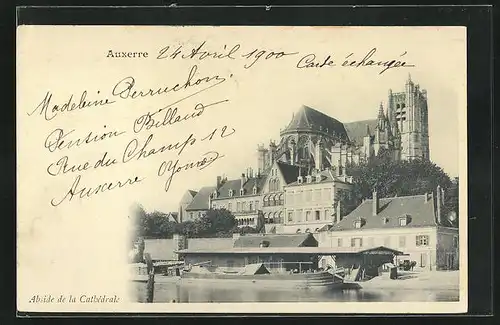 Auxerre 24 Avril 1900 Carte échangée
Madeleine Perruchon.
Pension Billaud
Rue du Champ 12
Auxerre Yonne
Abside de la Cathédrale